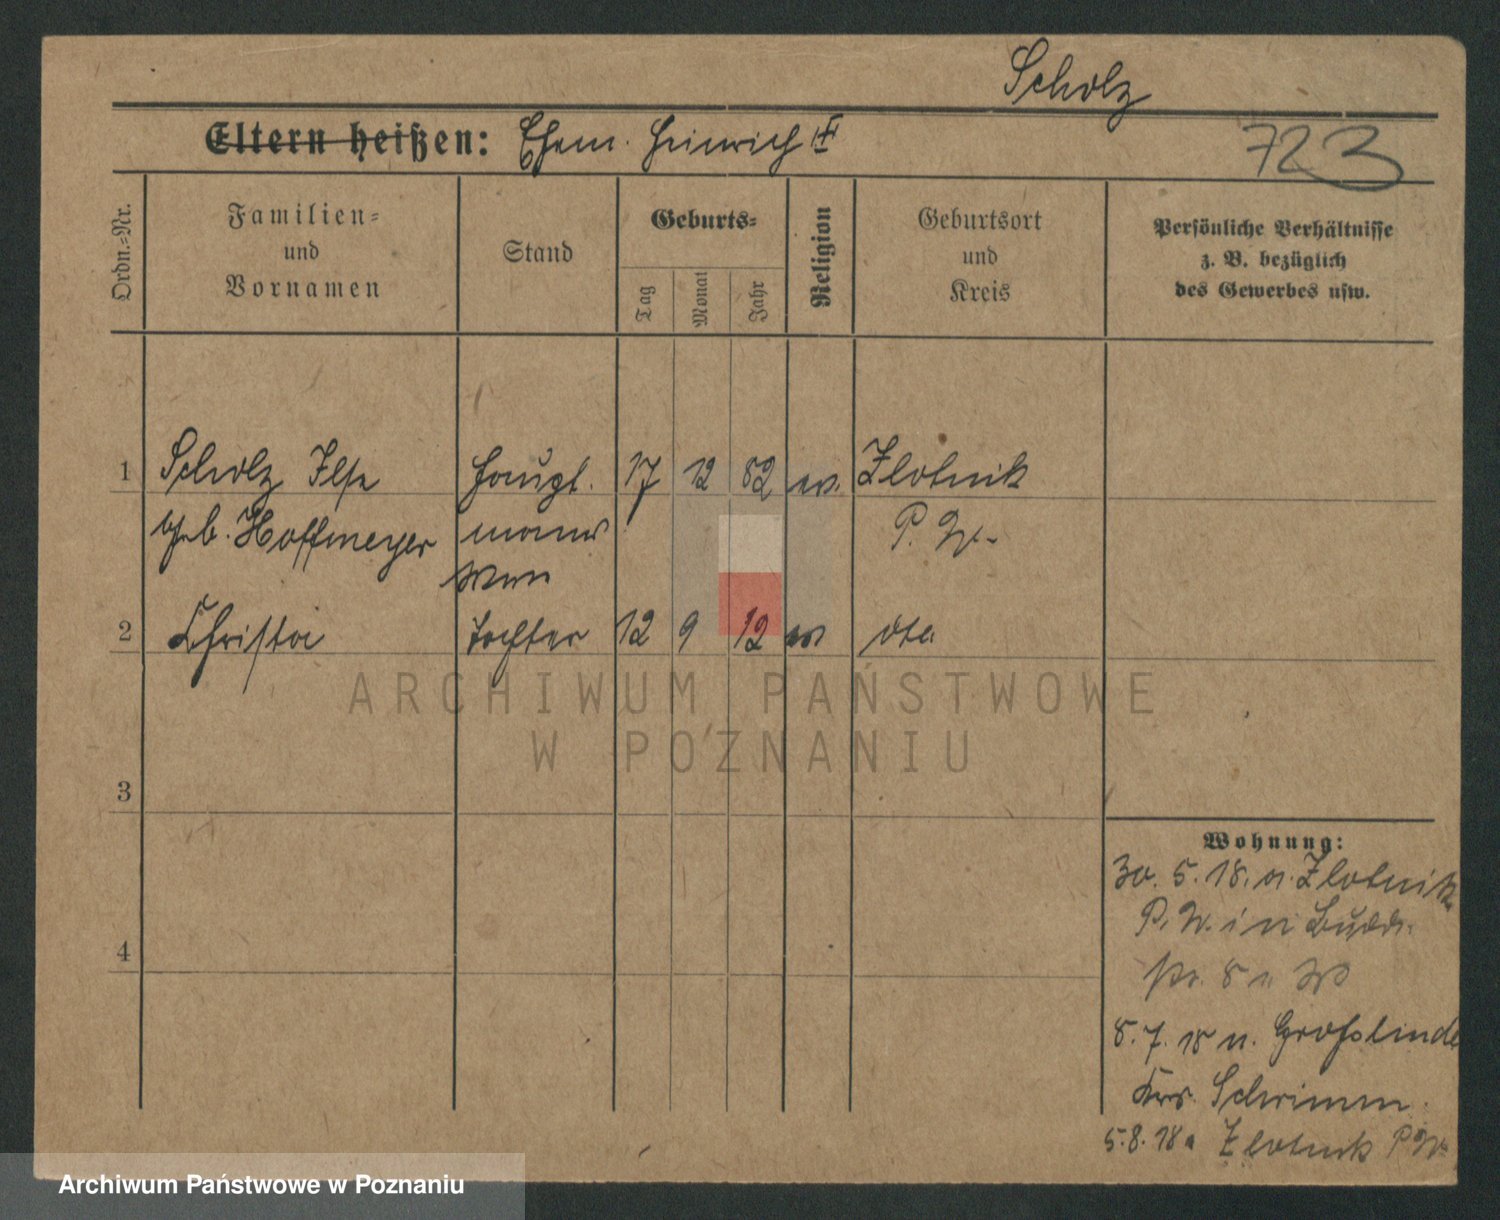 Scholz
Eltern heißen: Ehem. Heinrich
723
Ordn.=Nr.
Familien=
und
Vornamen
Stand
Geburts=
Tag
Monat
Jahr
Religion
Geburtsort
und
Kreis
Persönliche Verhältnisse
z. B. bezüglich
des Gewerbes usw.
1 Scholz Ilse Haupt. 17 12 82 ev. Zlotnik
geb. Hoffmeyer manns P. W.
Wwe
2 Christa Tochter 12 9 12 ev dto
3
4
Wohnung:
30. 5. 18. a. Zlotnik
P. W. in
8
8. 7. 18 n. Großlinde
Krs. Schrimm
5. 8. 18 a Zlotnik P W.
ARCHIWUM PAŃSTWOWE
W POZNANIU
Archiwum Państwowe w Poznaniu